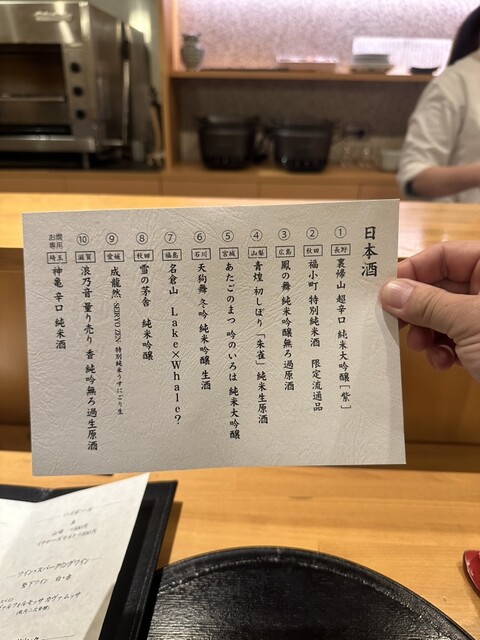 日本酒
① 長野 裏帰山 超辛口 純米大吟醸［紫］
② 秋田 福小町 特別純米酒 限定流通品
③ 広島 鳳の舞 純米吟醸無ろ過原酒
④ 山梨 青煌 初しぼり「朱雀」純米生原酒
⑤ 宮城 あたごのまつ 吟のいろは 純米大吟醸
⑥ 石川 天狗舞 冬吟 純米吟醸 生酒
⑦ 福島 名倉山 Lake×Whale?
⑧ 秋田 雪の茅舎 純米吟醸
⑨ 愛媛 成龍然 SEIRYO ZEN 特別純米うすにごり生
⑩ 滋賀 浪乃音 量り売り 香 純吟無ろ過生原酒
お燗専用 埼玉 神亀 辛口 純米酒
ハイボール
ワイン・スパークリングワイン